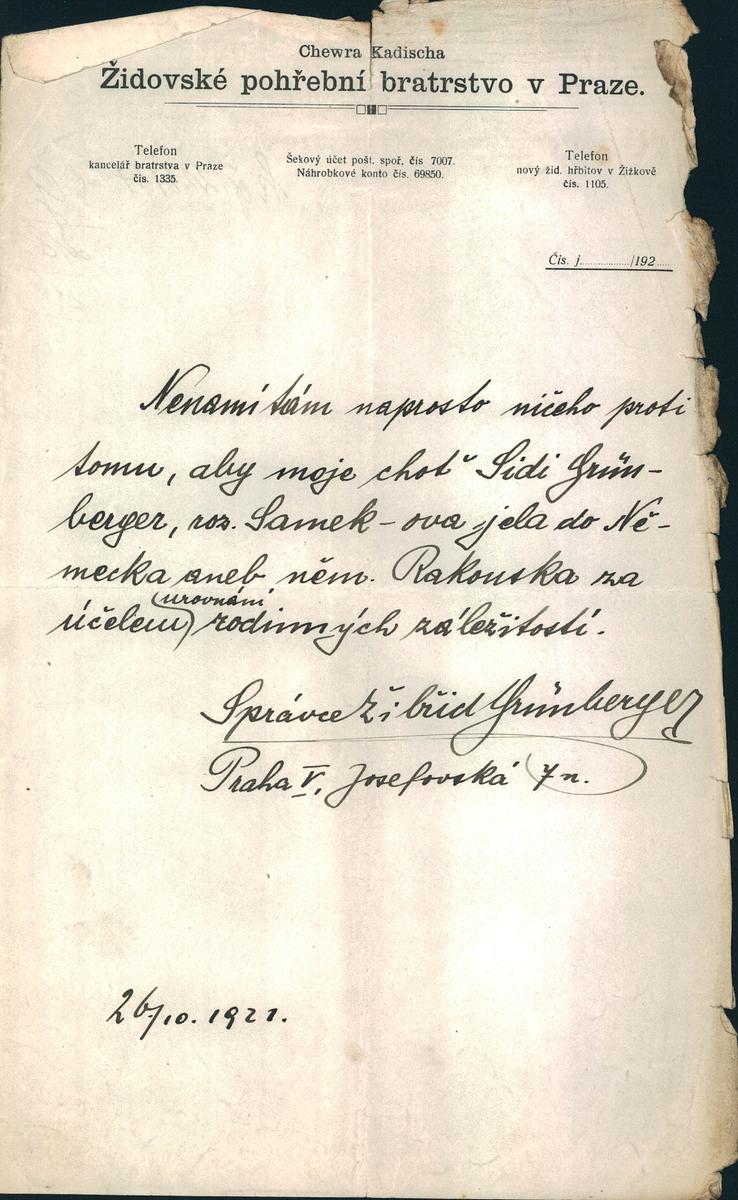 Chewra Kadischa
Židovské pohřební bratrstvo v Praze.
Telefon
kancelář bratrstva v Praze
čís. 1335.
Šekový účet pošt. spoř. čís 7007.
Náhrobkové konto čís. 69850.
Telefon
nový žid. hřbitov v Žižkově
čís. 1105.
Čís. j............/192....
Nenamítám naprosto ničeho proti
tomu, aby moje choť Sidi Grün-
berger, roz. Samek-ova jela do Ně-
mecka aneb něm. Rakouska za
urovnání
účelem rodinných záležitostí.
Správce Grünberger
Praha V, Josefovská 7n.
26/10. 1921.